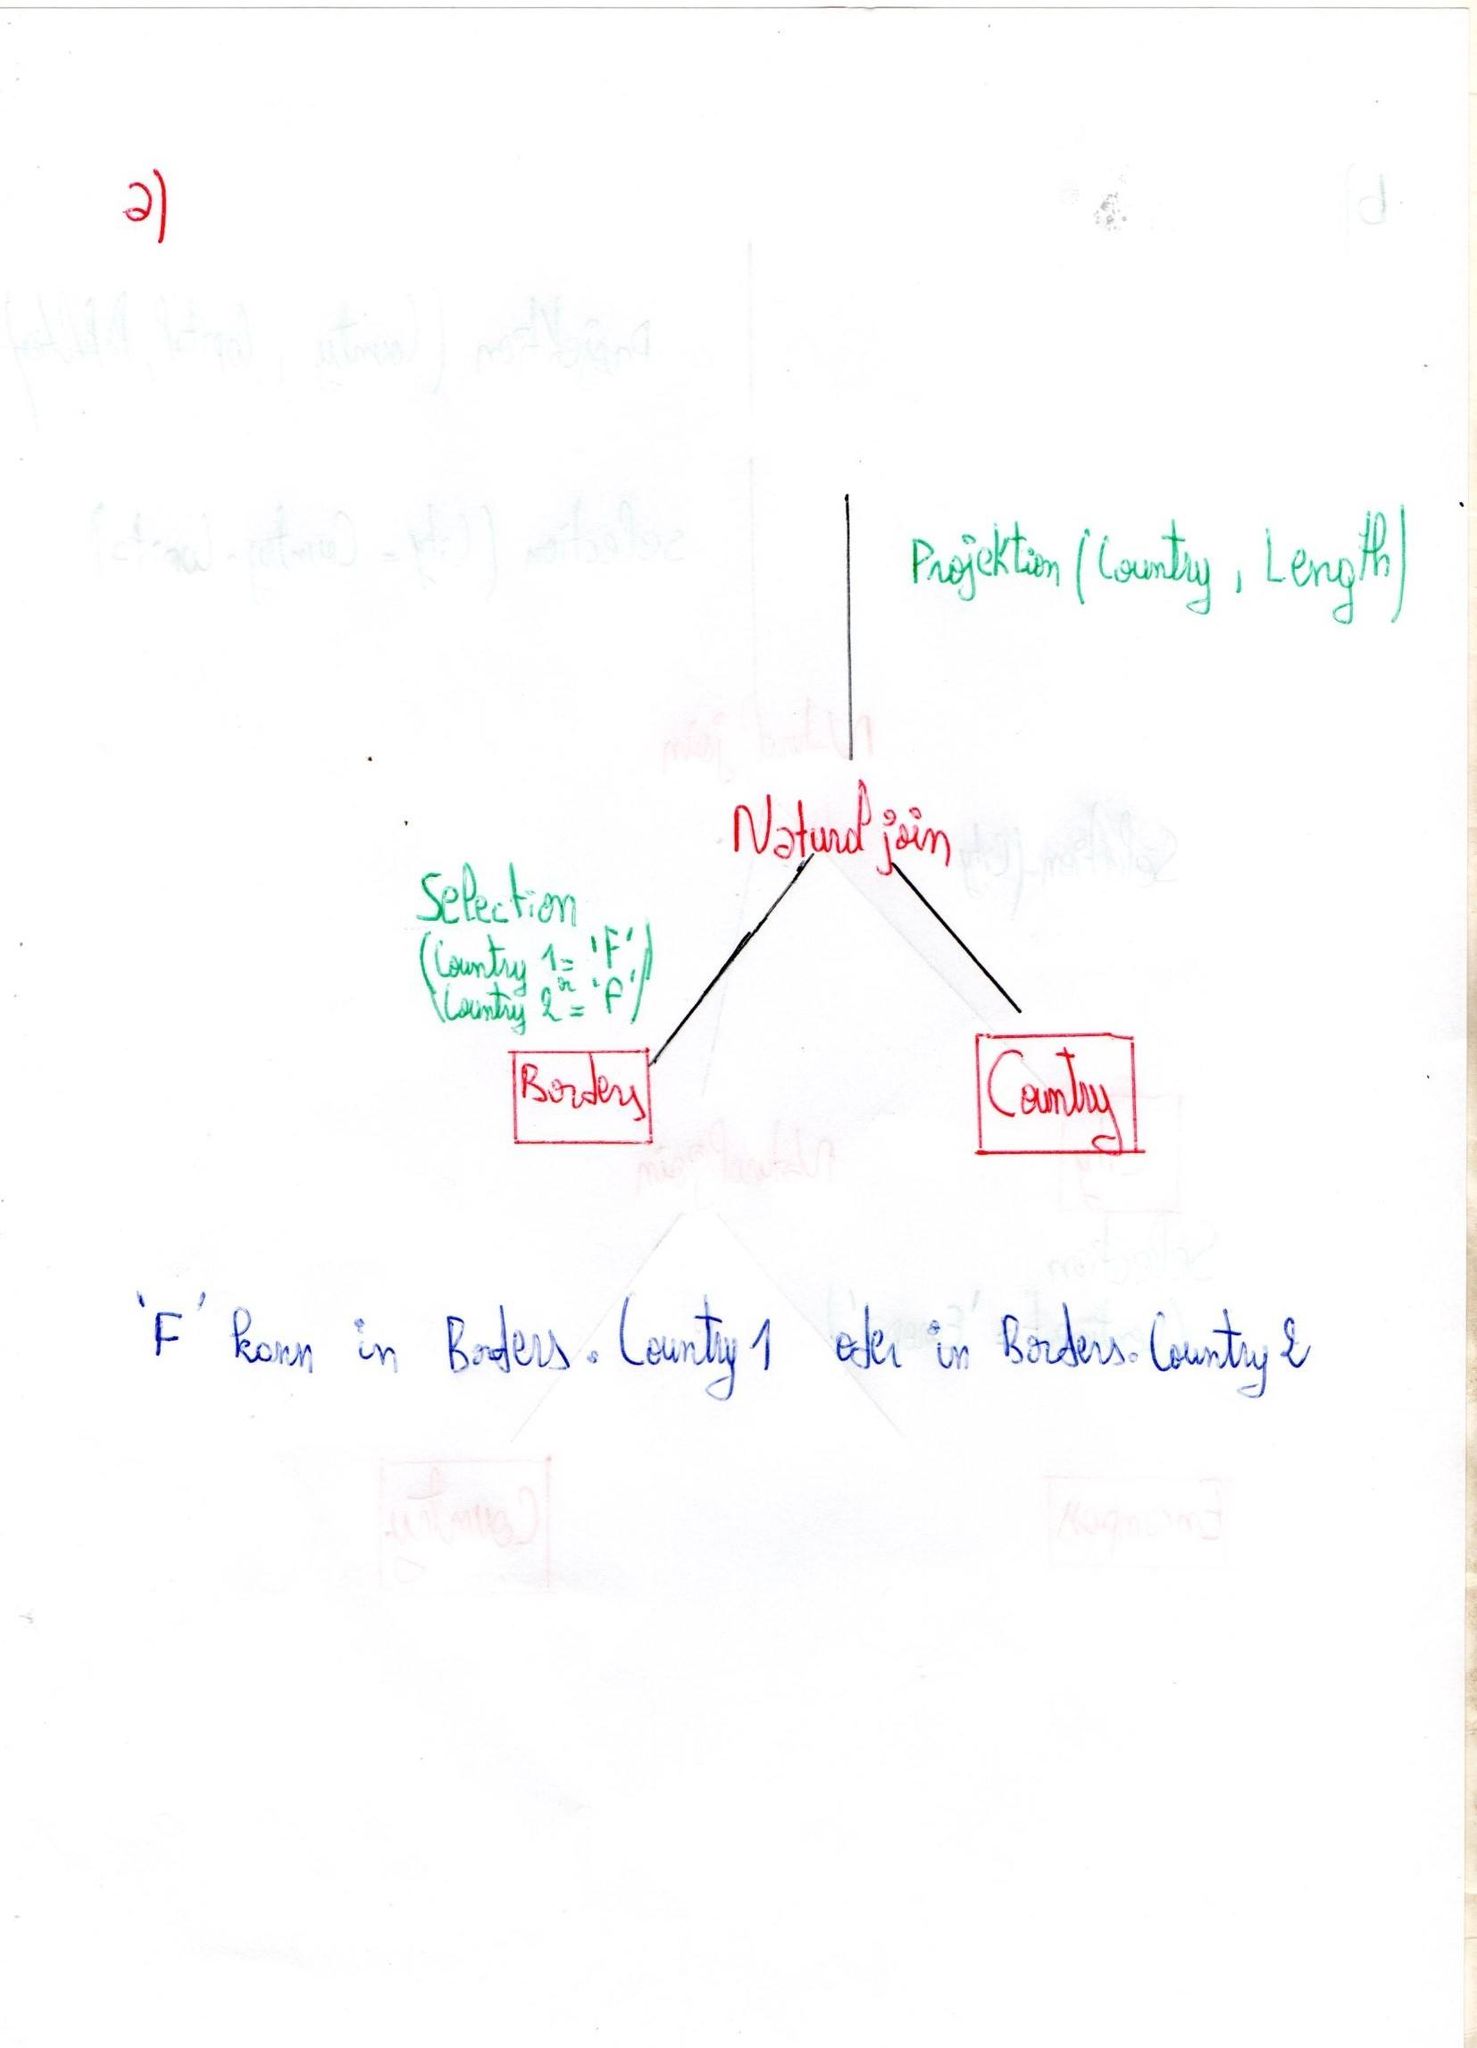 a)
Projektion (Country, Length)
Natural join
Selection
(Country 1 = 'F'
or
Country 2 = 'F')
Borders
Country
'F' kann in Borders.Country1 oder in Borders.Country2